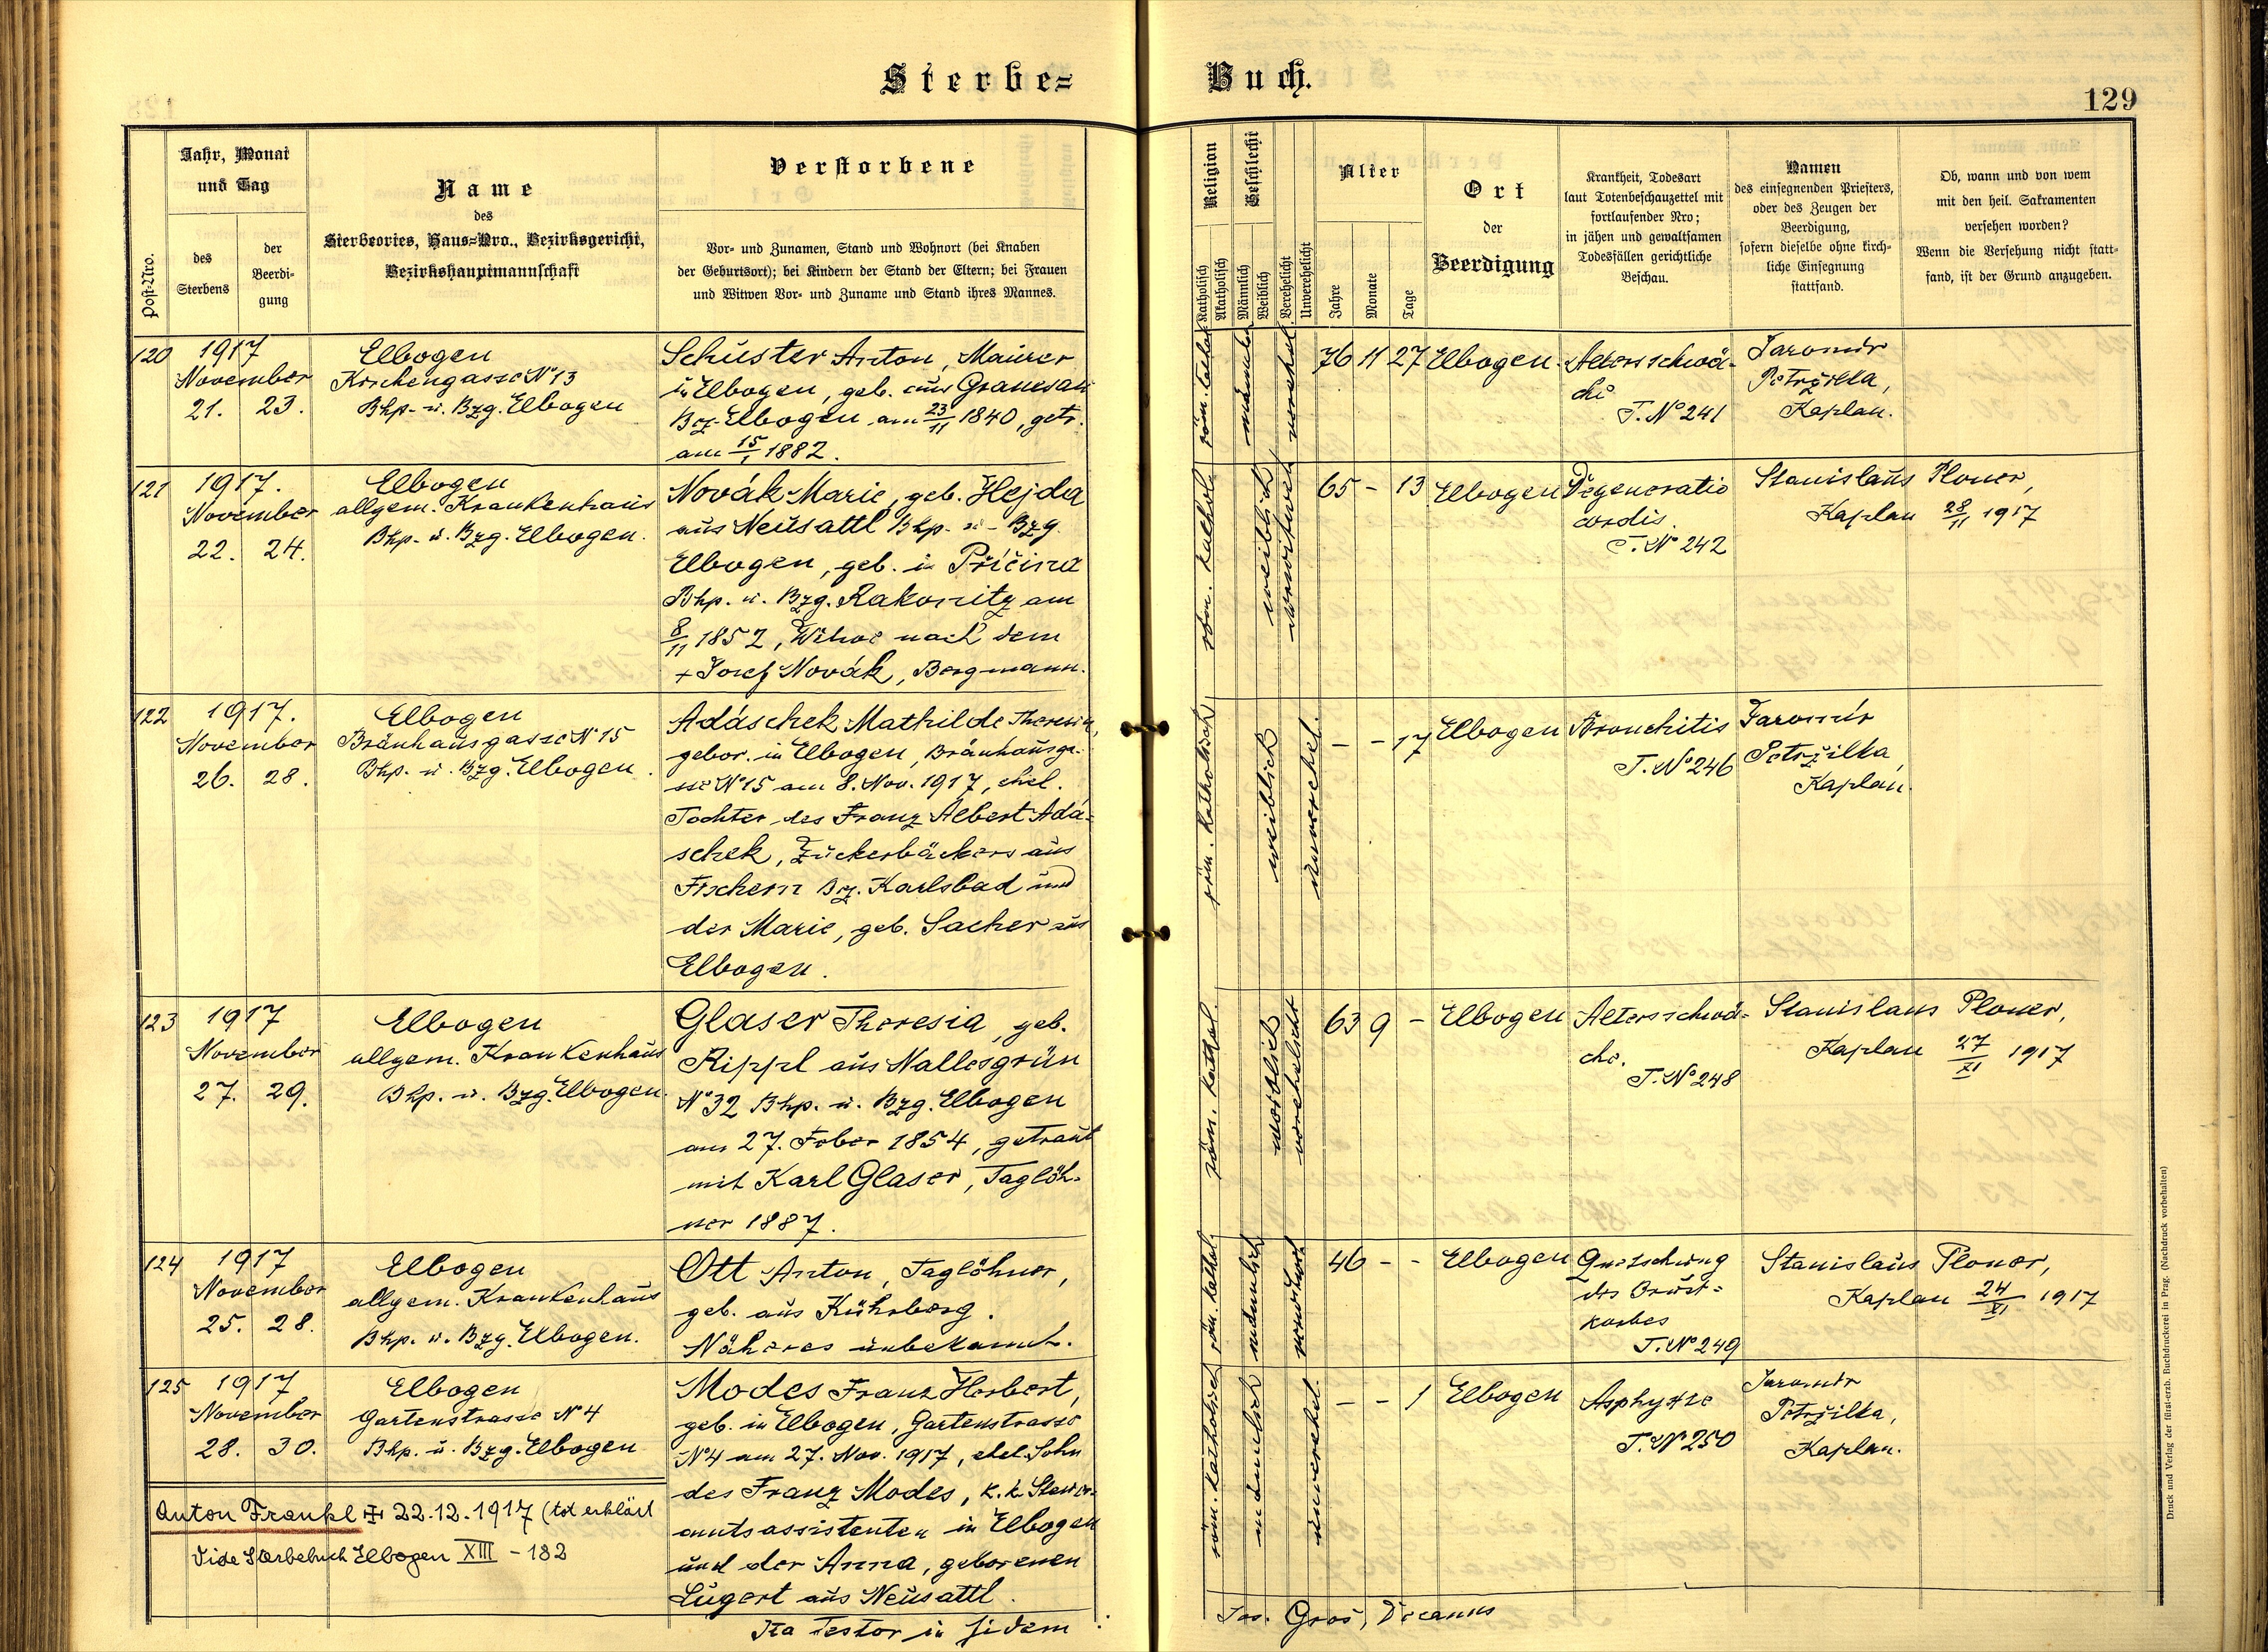 Sterbe=
Buch.
129
Post-Nro.
Jahr, Monat
und Tag
des
Sterbens
der
Beerdi-
gung
Name
des
Sterbeortes, Haus=Nro., Bezirksgericht,
Bezirkshauptmannschaft
Verstorbene
Vor- und Zunamen, Stand und Wohnort (bei Knaben
der Geburtsort); bei Kindern der Stand der Eltern; bei Frauen
und Witwen Vor- und Zuname und Stand ihres Mannes.
Religion
Katholisch
Akatholisch
Geschlecht
Männlich
Weiblich
Verehelicht
Unverehelicht
Alter
Jahre
Monate
Tage
Ort
der
Beerdigung
Krankheit, Todesart
laut Totenbeschauzettel mit
fortlaufender Nro;
in jähen und gewaltsamen
Todesfällen gerichtliche
Beschau.
Namen
des einsegnenden Priesters,
oder des Zeugen der
Beerdigung,
sofern dieselbe ohne kirch-
liche Einsegnung
stattfand.
Ob, wann und von wem
mit den heil. Sakramenten
versehen worden?
Wenn die Versehung nicht statt-
fand, ist der Grund anzugeben.
120
1917
November
21. 23.
Elbogen
Kirchengasse No 13
Bhp.- u. Bzg. Elbogen
Schuster Anton, Maurer
in Elbogen, geb. aus Granesau
Bz. Elbogen am 23/11 1840, getr.
am 15/1 1882.
männlich
verehel.
76 11 27
Elbogen
Altersschwä-
che
T. No 241
Jaromír
Petržilka,
Kaplan.
121
1917.
November
22. 24.
Elbogen
allgem. Krankenhaus
Bhp. u. Bzg. Elbogen.
Novák Marie, geb. Hejda
aus Neusattl Bhp. u. Bzg.
Elbogen, geb. in Příčina
Bhp. u. Bzg. Rakonitz am
8/11 1852, Witwe nach dem
+ Josef Novák, Bergmann.
röm. kathol.
weiblich
verwitwet
65 - 13
Elbogen
Degeneratio
cordis.
T. No 242
Stanislaus Ploner,
Kaplan 28/11 1917
122
1917.
November
26. 28.
Elbogen
Bräuhausgasse No 15
Bhp. u. Bzg. Elbogen.
Adáschek Mathilde Theresia,
gebor. in Elbogen, Bräuhausga-
sse No 15 am 8. Nov. 1917, ehel.
Tochter des Franz Albert Adá-
schek, Zuckerbäckers aus
Fischern Bz. Karlsbad und
der Marie, geb. Sacher aus
Elbogen.
röm. katholisch
weiblich
unverehel.
- - 17
Elbogen
Bronchitis
T. No 246
Jaromír
Petržilka,
Kaplan.
123
1917
November
27. 29.
Elbogen
allgem. Krankenhaus
Bhp. u. Bzg. Elbogen.
Glaser Theresia, geb.
Rippl aus Nallesgrün
No 32 Bhp. u. Bzg. Elbogen
am 27. Feber 1854, getraut
mit Karl Glaser, Taglöh-
ner 1887.
röm. kathol.
weiblich
verehelicht
63 9 -
Elbogen
Altersschwä-
che.
T. No 248
Stanislaus Ploner,
Kaplan 27/XI 1917
124
1917
November
25. 28.
Elbogen
allgem. Krankenhaus
Bhp. u. Bzg. Elbogen.
Ott Anton, Taglöhner,
geb. aus Kührberg.
Näheres unbekannt.
röm. kathol.
männlich
46 - -
Elbogen
Quetschung
des Brust-
korbes
T. No 249
Stanislaus Ploner,
Kaplan 24/XI 1917
125
1917
November
28. 30.
Elbogen
Gartenstrasse No 4
Bhp. u. Bzg. Elbogen
Modes Franz Herbert,
geb. in Elbogen, Gartenstrasse
No 4 am 27. Nov. 1917, ehel. Sohn
des Franz Modes, k. k. Steuer-
amtsassistenten in Elbogen
und der Anna, geborenen
Lugert aus Neusattl.
röm. katholisch
männlich
unverehel.
- - 1
Elbogen
Asphyxie
T. No 250
Jaromír
Petržilka,
Kaplan.
Anton Frankl ⌶ 22.12.1917 (tot erklärt
Vide Sterbebuch Elbogen XIII - 182
Ita testor in fidem
Jos. Gros, Decanus
Druck und Verlag der fürst-erzb. Buchdruckerei in Prag. (Nachdruck vorbehalten)